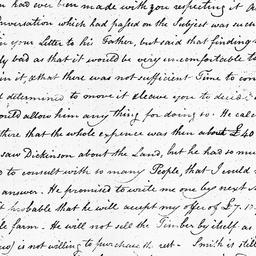 had ever been made with you respecting it
conversation which had passed on the Subject was such
in your Letter to his Father, but said that finding
bad as that it would be very uncomfortable to
in it, & that there was not sufficient Time to con
determined to move it & leave you to decide
would allow him any thing for doing it. He calc
there that the whole expence was then about £40
saw Dickinson about the Land, but he had so mu
to consult with so many People, that I could
answer. He promised to write me one by next
probable that he will accept my offer of £7.1
farm. He will not sell the Timber by itself as
is not willing to purchase the rest - Smith is still